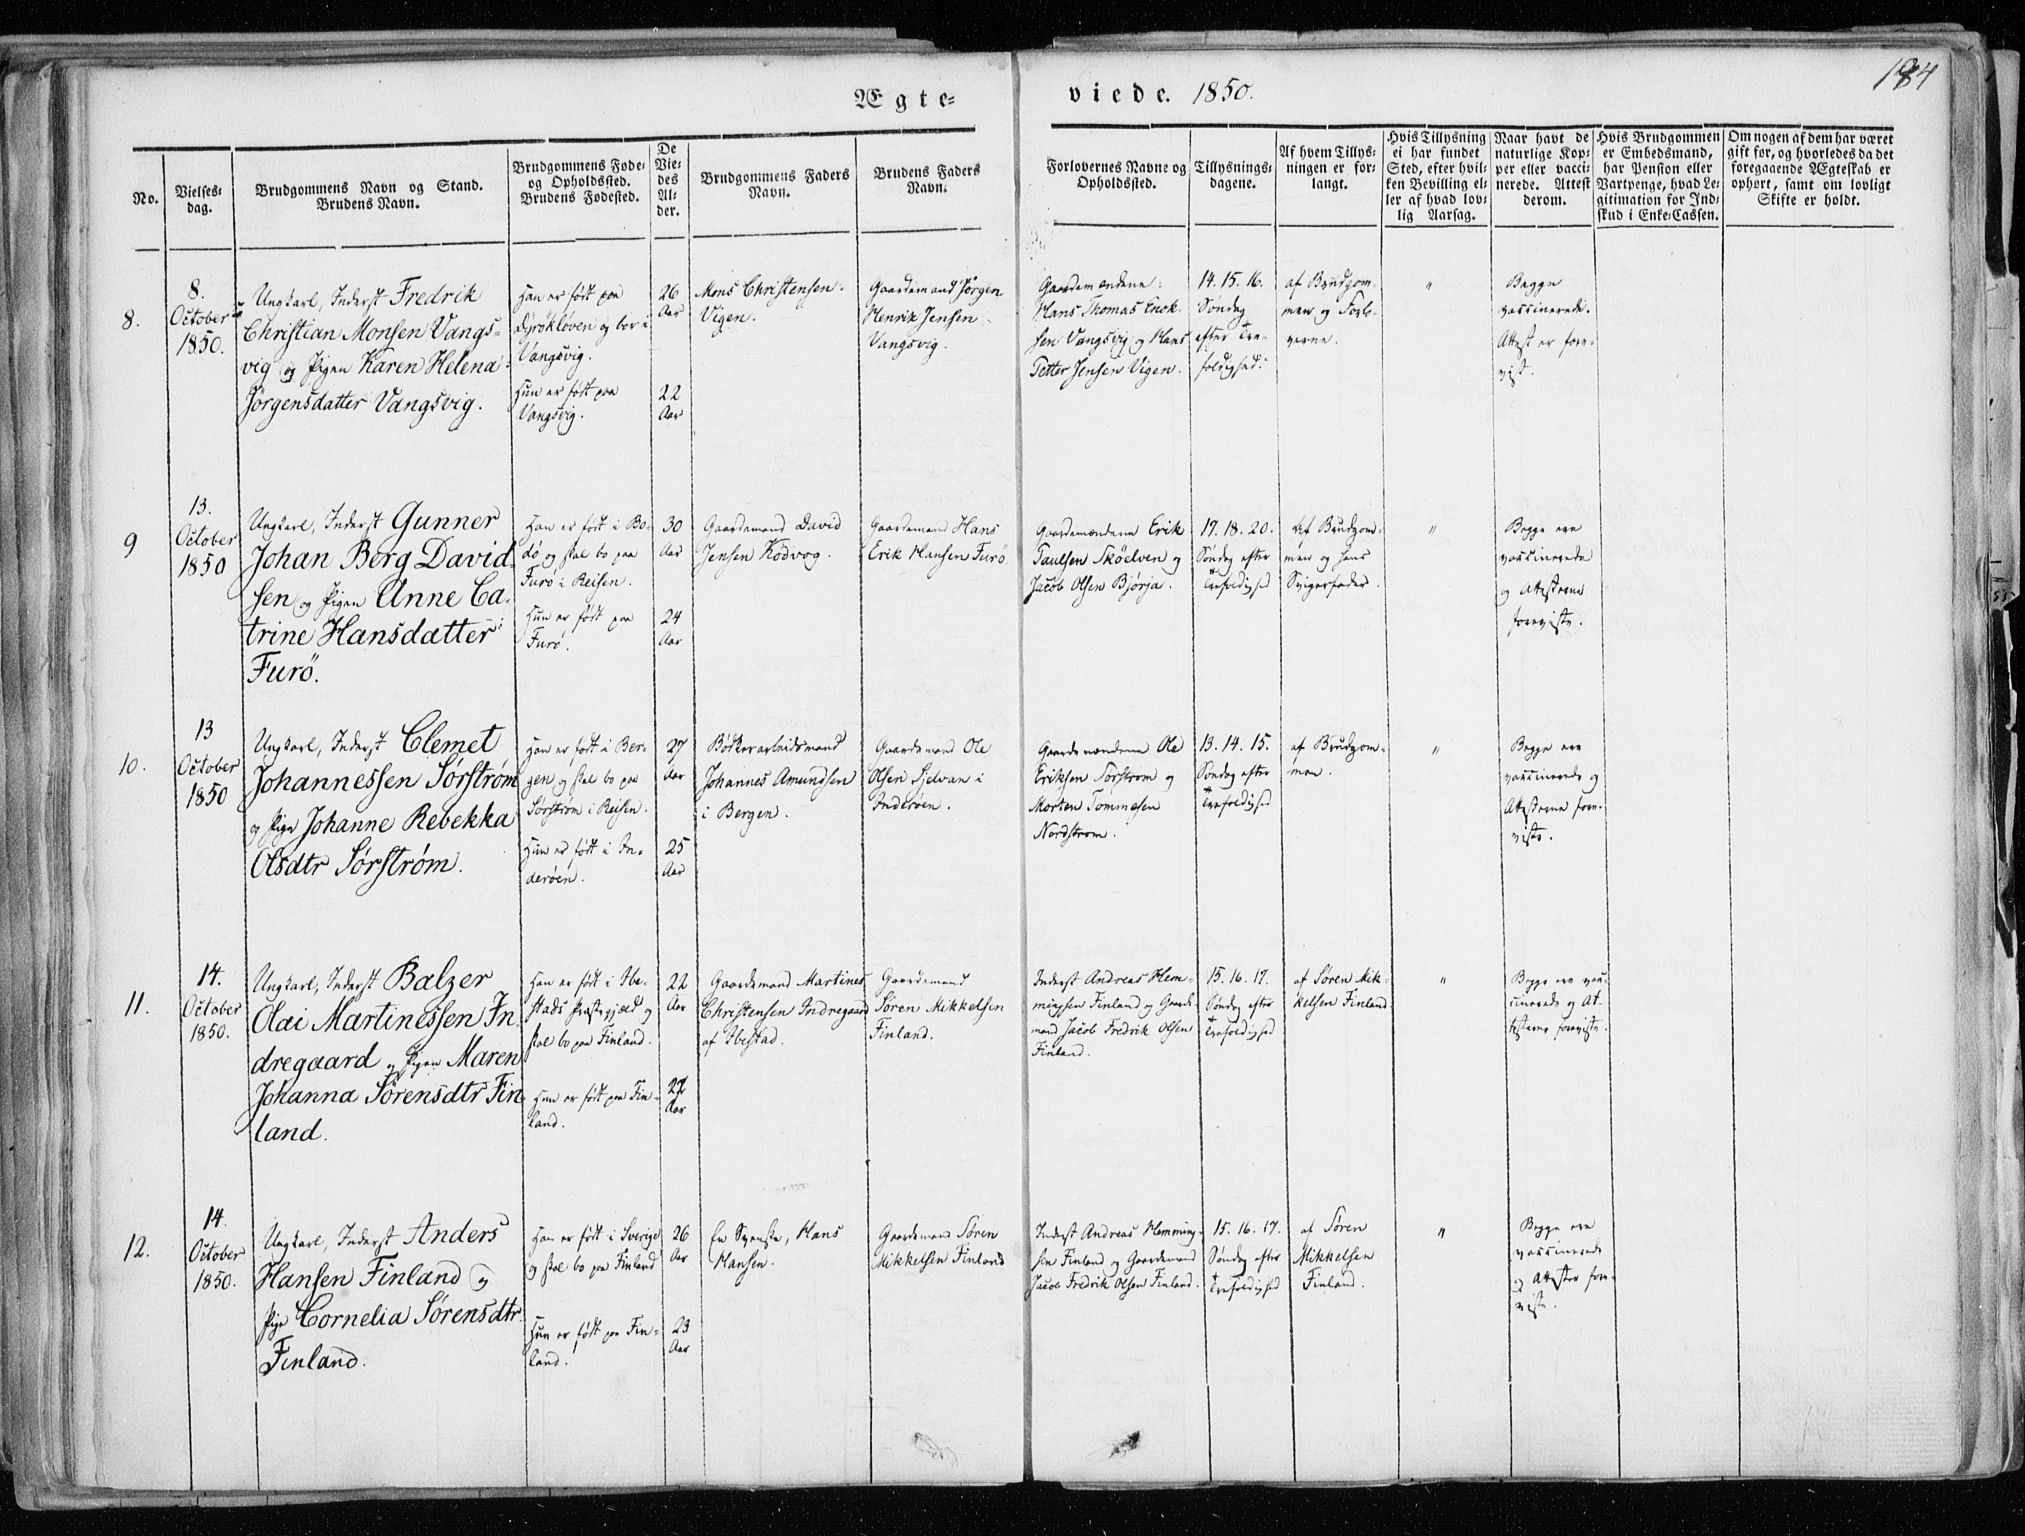 Ægte-
viede. 1850.
184
No.
Vielses-
dag.
Brudgommens Navn og Stand.
Brudens Navn.
Brudgommens Føde-
og Opholdssted.
Brudens Fødested.
De
Vie-
des
Al-
der.
Brudgommens Faders
Navn.
Brudens Faders
Navn.
Forlovernes Navne og
Opholdssted.
Tillysnings-
dagene.
Af hvem Tillys-
ningen er for-
langt.
Hvis Tillysning
ei har fundet
Sted, efter hvil-
ken Bevilling el-
ler af hvad lov-
lig Aarsag.
Naar havt de
naturlige Kop-
per eller vacci-
nerede. Attest
derom.
Hvis Brudgommen
er Embedsmand,
har Pension eller
Vartpenge, hvad Le-
gitimation for Ind-
skud i Enke-Cassen.
Om nogen af dem har været
gift før, og hvorledes da det
foregaaende Ægteskab er
ophørt, samt om lovligt
Skifte er holdt.
8.
8.
October
1850.
Ungkarl, Inderst Fredrik
Christian Monsen Vangs-
vig og Pigen Karen Helena
Jørgensdatter Vangsvig.
Han er født paa
Dyrökløven og bor i
Vangsvig.
Hun er født paa
Vangsvig.
26
Aar
22
Aar
Mons Christensen
Vigen.
Gaardemand Jørgen
Henrik Jensen
Vangsvig.
Gaardemændene:
Hans Thomas Enok-
sen Vangsvig og Hans
Petter Jensen Vigen.
14. 15. 16.
Søndag
efter Tre-
foldighed.
af Brudgom-
men og Forlo-
verne.
"
Begge
vaccinerede.
Attest er fore-
vist.
9
13.
October
1850
Ungkarl, Inderst Gunner
Johan Berg David-
sen og Pigen Anne Ca-
trine Hansdatter
Furö.
Han er født i Bo-
dø og skal bo paa
Furö i Reisen.
Hun er født paa
Furö.
30
Aar
24
Aar
Gaardemand David
Jensen Kodvog.
Gaardemand Hans
Erik Hansen Furö
Gaardemændene Erik
Paulsen Sköelven og
Jacob Olsen Bjørja.
17. 18. 20.
Søndag efter
Trefoldighed
Af Brudgom-
men og hans
Svigerfader.
"
Begge ere
vaccinerede
og Attesterne
foreviste.
10.
13
October
1850
Ungkarl, Inderst Clemet
Johannessen Sørstrøm
og Pige Johanne Rebekka
Olsdtr Sørstrøm.
Han er født i Ber-
gen og skal bo paa
Sørstrøm i Reisen.
Hun er født i In-
derøen.
27
Aar
25
Aar
Bødkerarbeidsmand
Johannes Amundsen
i Bergen.
Gaardemand Ole
Olsen Sjelvan i
Inderøen.
Gaardemændene Ole
Eriksen Sørstrøm og
Morten Tommesen
Nordstrøm.
13. 14. 15.
Søndag efter
Trefoldighed
af Brudgom-
men.
"
Begge ere
vaccinerede og
Attesterne fore-
viste.
11.
14.
October
1850.
Ungkarl, Inderst Balzer
Olai Martinessen In-
dregaard og Pigen Maren
Johanna Sørensdtr Fin-
land.
Han er født i Ibe-
stads Præstegjæld og
skal bo paa Finland.
Hun er født paa Fin-
land.
22
Aar
Aar
Gaardemand Martines
Christensen Indregaard
af Ibestad.
Gaardemand
Sören Mikkelsen
Finland.
Inderst Andreas Hem-
mingsen Finland og Gaarde-
mand Jacob Fredrik Olsen
Finland.
15. 16. 17.
Søndag efter
Trefoldighed
af Søren Mik-
kelsen Finland
"
Begge ere vac-
cinerede og At-
testerne foreviste.
12.
14.
October
1850.
Ungkarl, Inderst Anders
Hansen Finland og
Pige Cornelia Sørensdtr
Finland.
Han er født i Sverige
og skal bo paa Finland
Hun er født paa Fin-
land.
26
Aar
23
Aar
En Svenske, Hans
Hansen.
Gaardemand Søren
Mikkelsen Finland
Inderst Andreas Hemming-
sen Finland og Gaardemand
Jacob Fredrik Olsen Finland.
15. 16. 17.
Søndag efter
Trefoldighed
af Søren
Mikkelsen
Finland.
"
Begge ere
vaccinerede
og Attester fore-
viste.